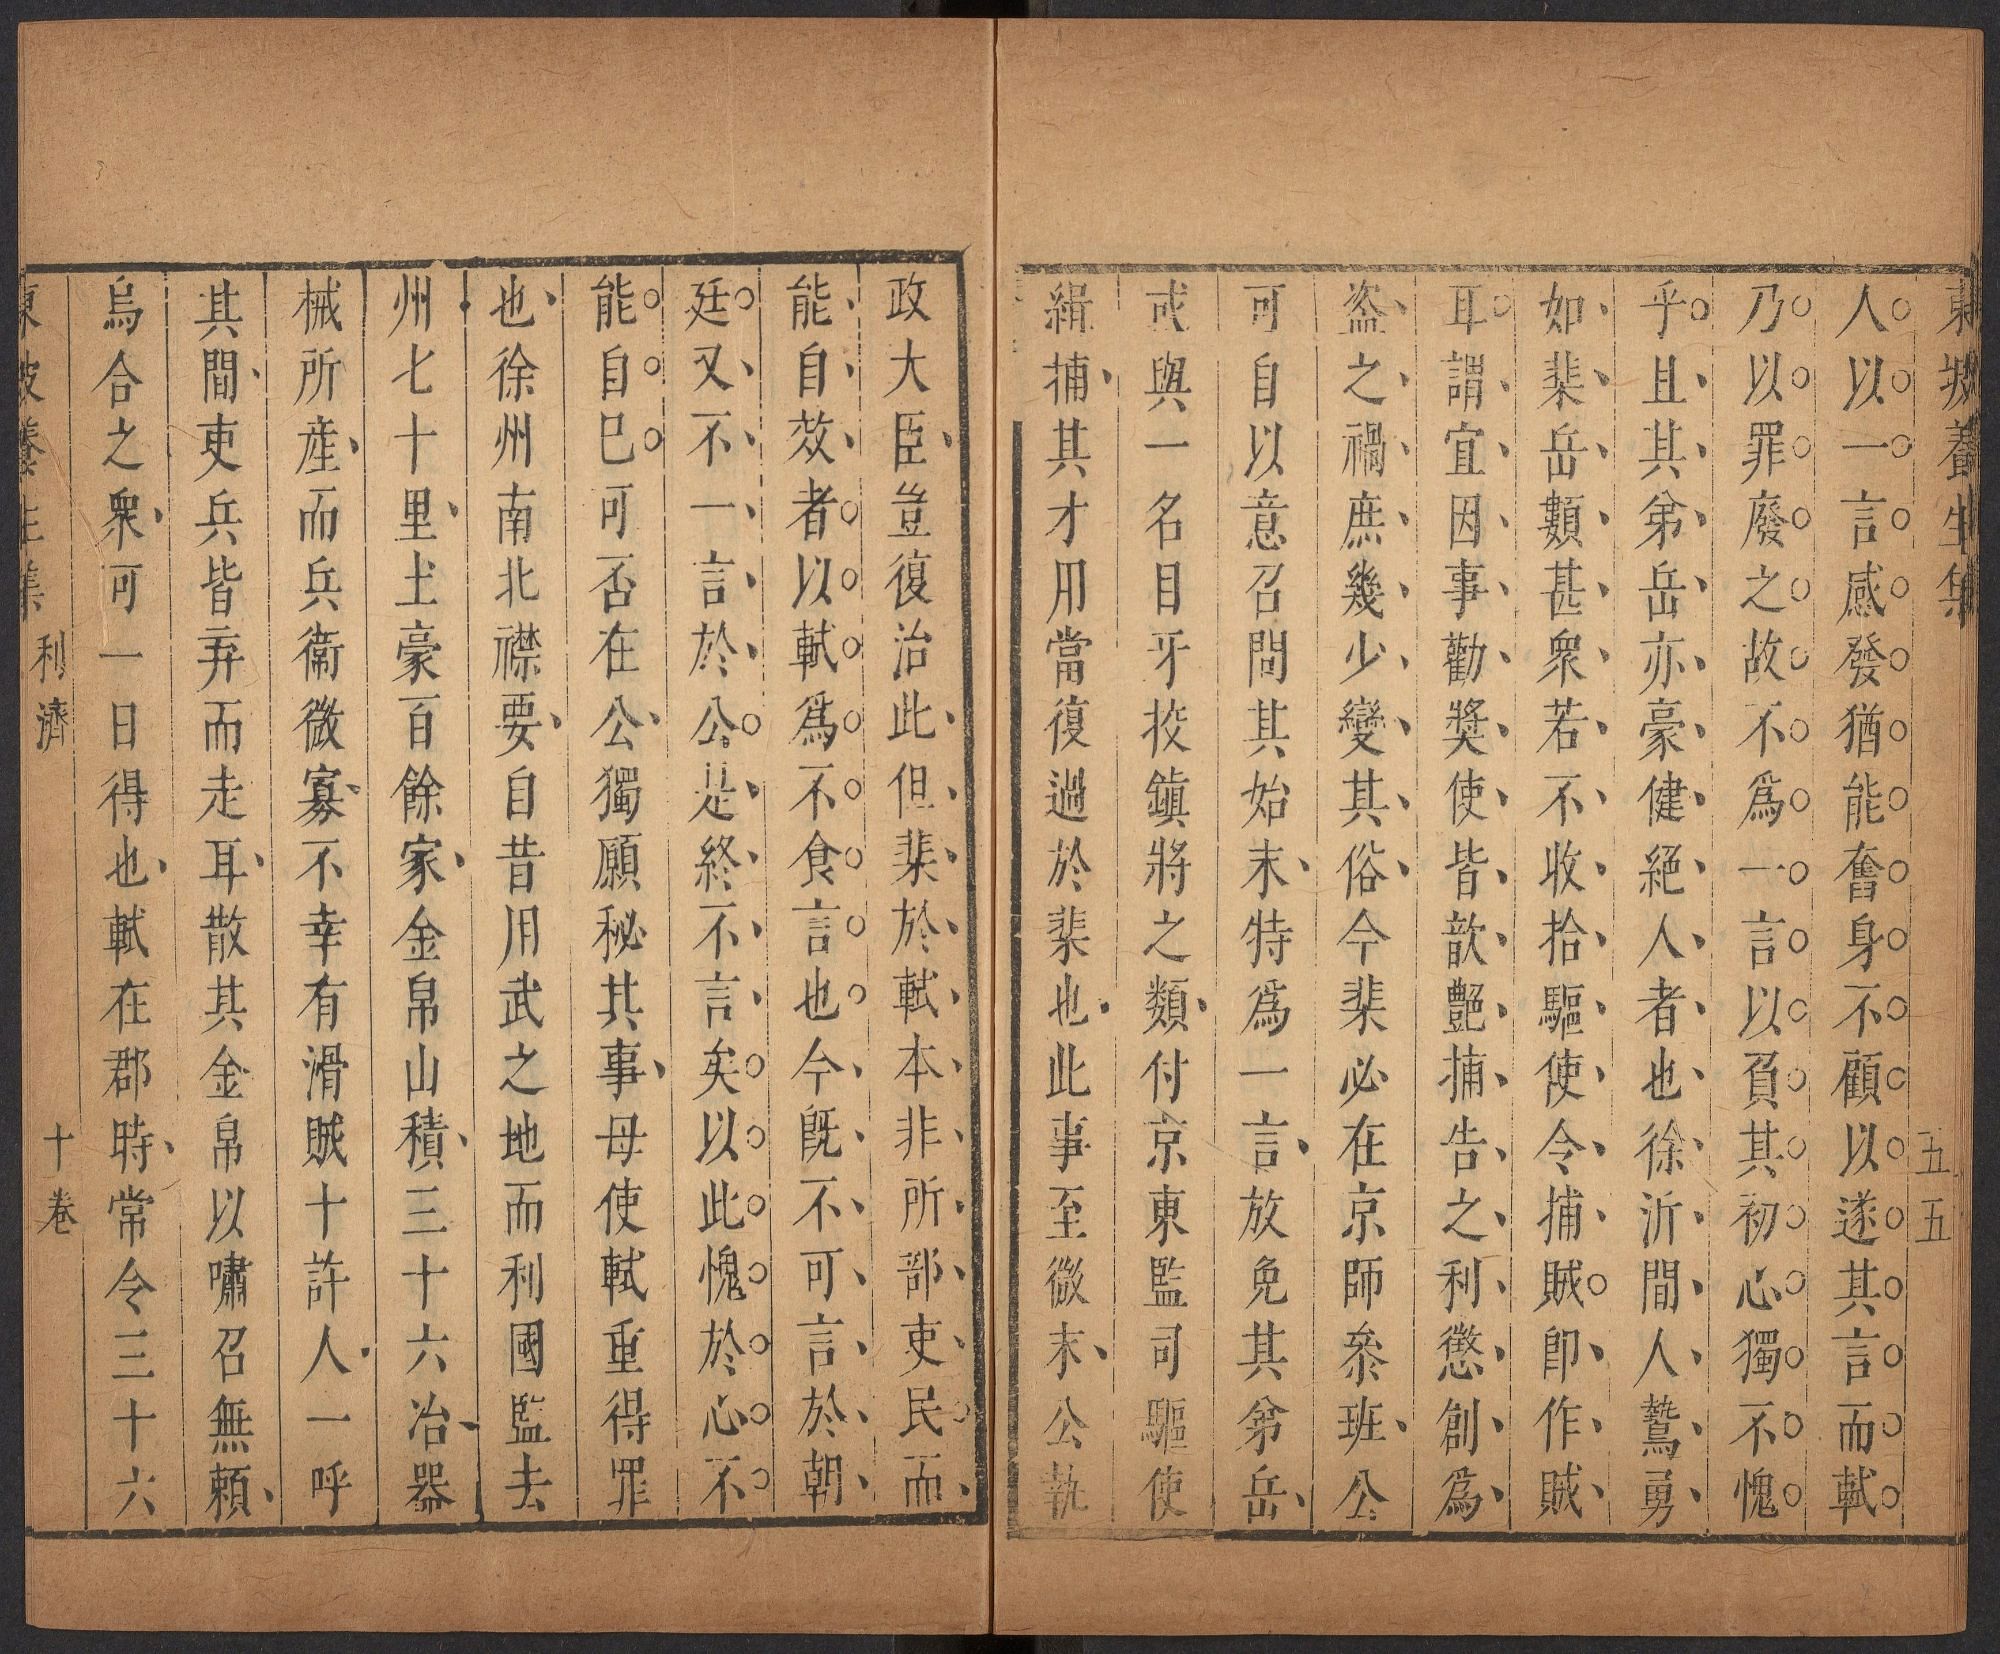 東坡養生集
五五
人以一言感發猶能奮身不顧以遂其言而軾
乃以罪廢之故不爲一言以負其初心獨不愧
乎且其弟岳亦豪健絕人者也徐沂間人鷙勇
如棐岳類甚衆若不收拾驅使令捕賊卽作賊
耳謂宜因事勸奬使皆歆艶捕告之利懲創爲
盜之禍庶幾少變其俗今棐必在京師叅班公
可自以意召問其始末特爲一言放免其弟岳
或與一名目牙挍鎮將之類付京東監司驅使
緝捕其才用當復過於棐也此事至微末公執
政大臣豈復治此但棐於軾本非所部吏民而
能自效者以軾爲不食言也今旣不可言於朝
廷又不一言於公是終不言矣以此愧於心不
能自已可否在公獨願秘其事毋使軾重得罪
也徐州南北襟要自昔用武之地而利國監去
州七十里土豪百餘家金帛山積三十六冶器
械所産而兵衞微寡不幸有滑賊十許人一呼
其間吏兵皆弃而走耳散其金帛以嘯召無賴
烏合之衆可一日得也軾在郡時常令三十六
東坡養生集
利濟
十卷